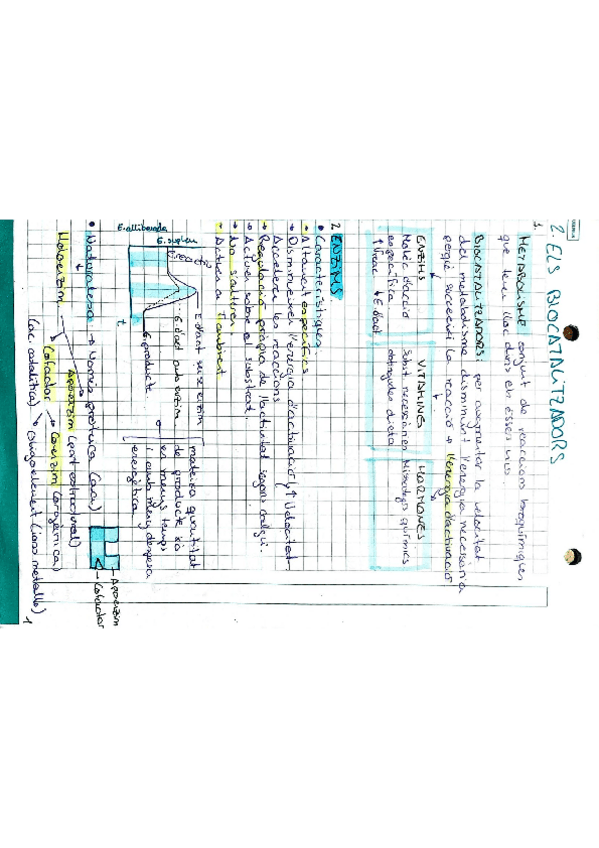 2. ELS BIOCATALITZADORS
1.
METABOLISME conjunt de reaccions bioquímiques
que tenen lloc dins els éssers vius.
BIOCATALITZADORS: per augmentar la velocitat
del metabolisme disminuint l'energia necessària
perquè succeeixi la reacció → l'energia d'activació
ENZIMS
Molèc. d'acció
específica
↑Vreac ↓E.d'act.
VITAMINES
Subst. necessàries
obtingudes dieta
HORMONES
Missatgers químics
2. ENZIMS
• Característiques
- Altament específics
- Disminueixen l'energia d'activació, ↑ Velocitat
Acceleren les reaccions
- Regulació pròpia de l'activitat segons
- Actuen sobre el substrat.
- No s'alteren
- Actuen a T ambient
E.alliberada
E.
Ereactiu
E.d'act sense enzim
E.d'act amb enzim
E.producte
t
mateixa quantitat
de producte
en menys temps
i amb menys despesa
energètica
• Naturalesa → Només proteica
Apoenzim
Cofactor
Holoenzim
Apoenzim (part estructural)
Cofactor
(ac. catalítica)
Coenzim (orgànica)
Oligoelement (ions metàl·lo)
1